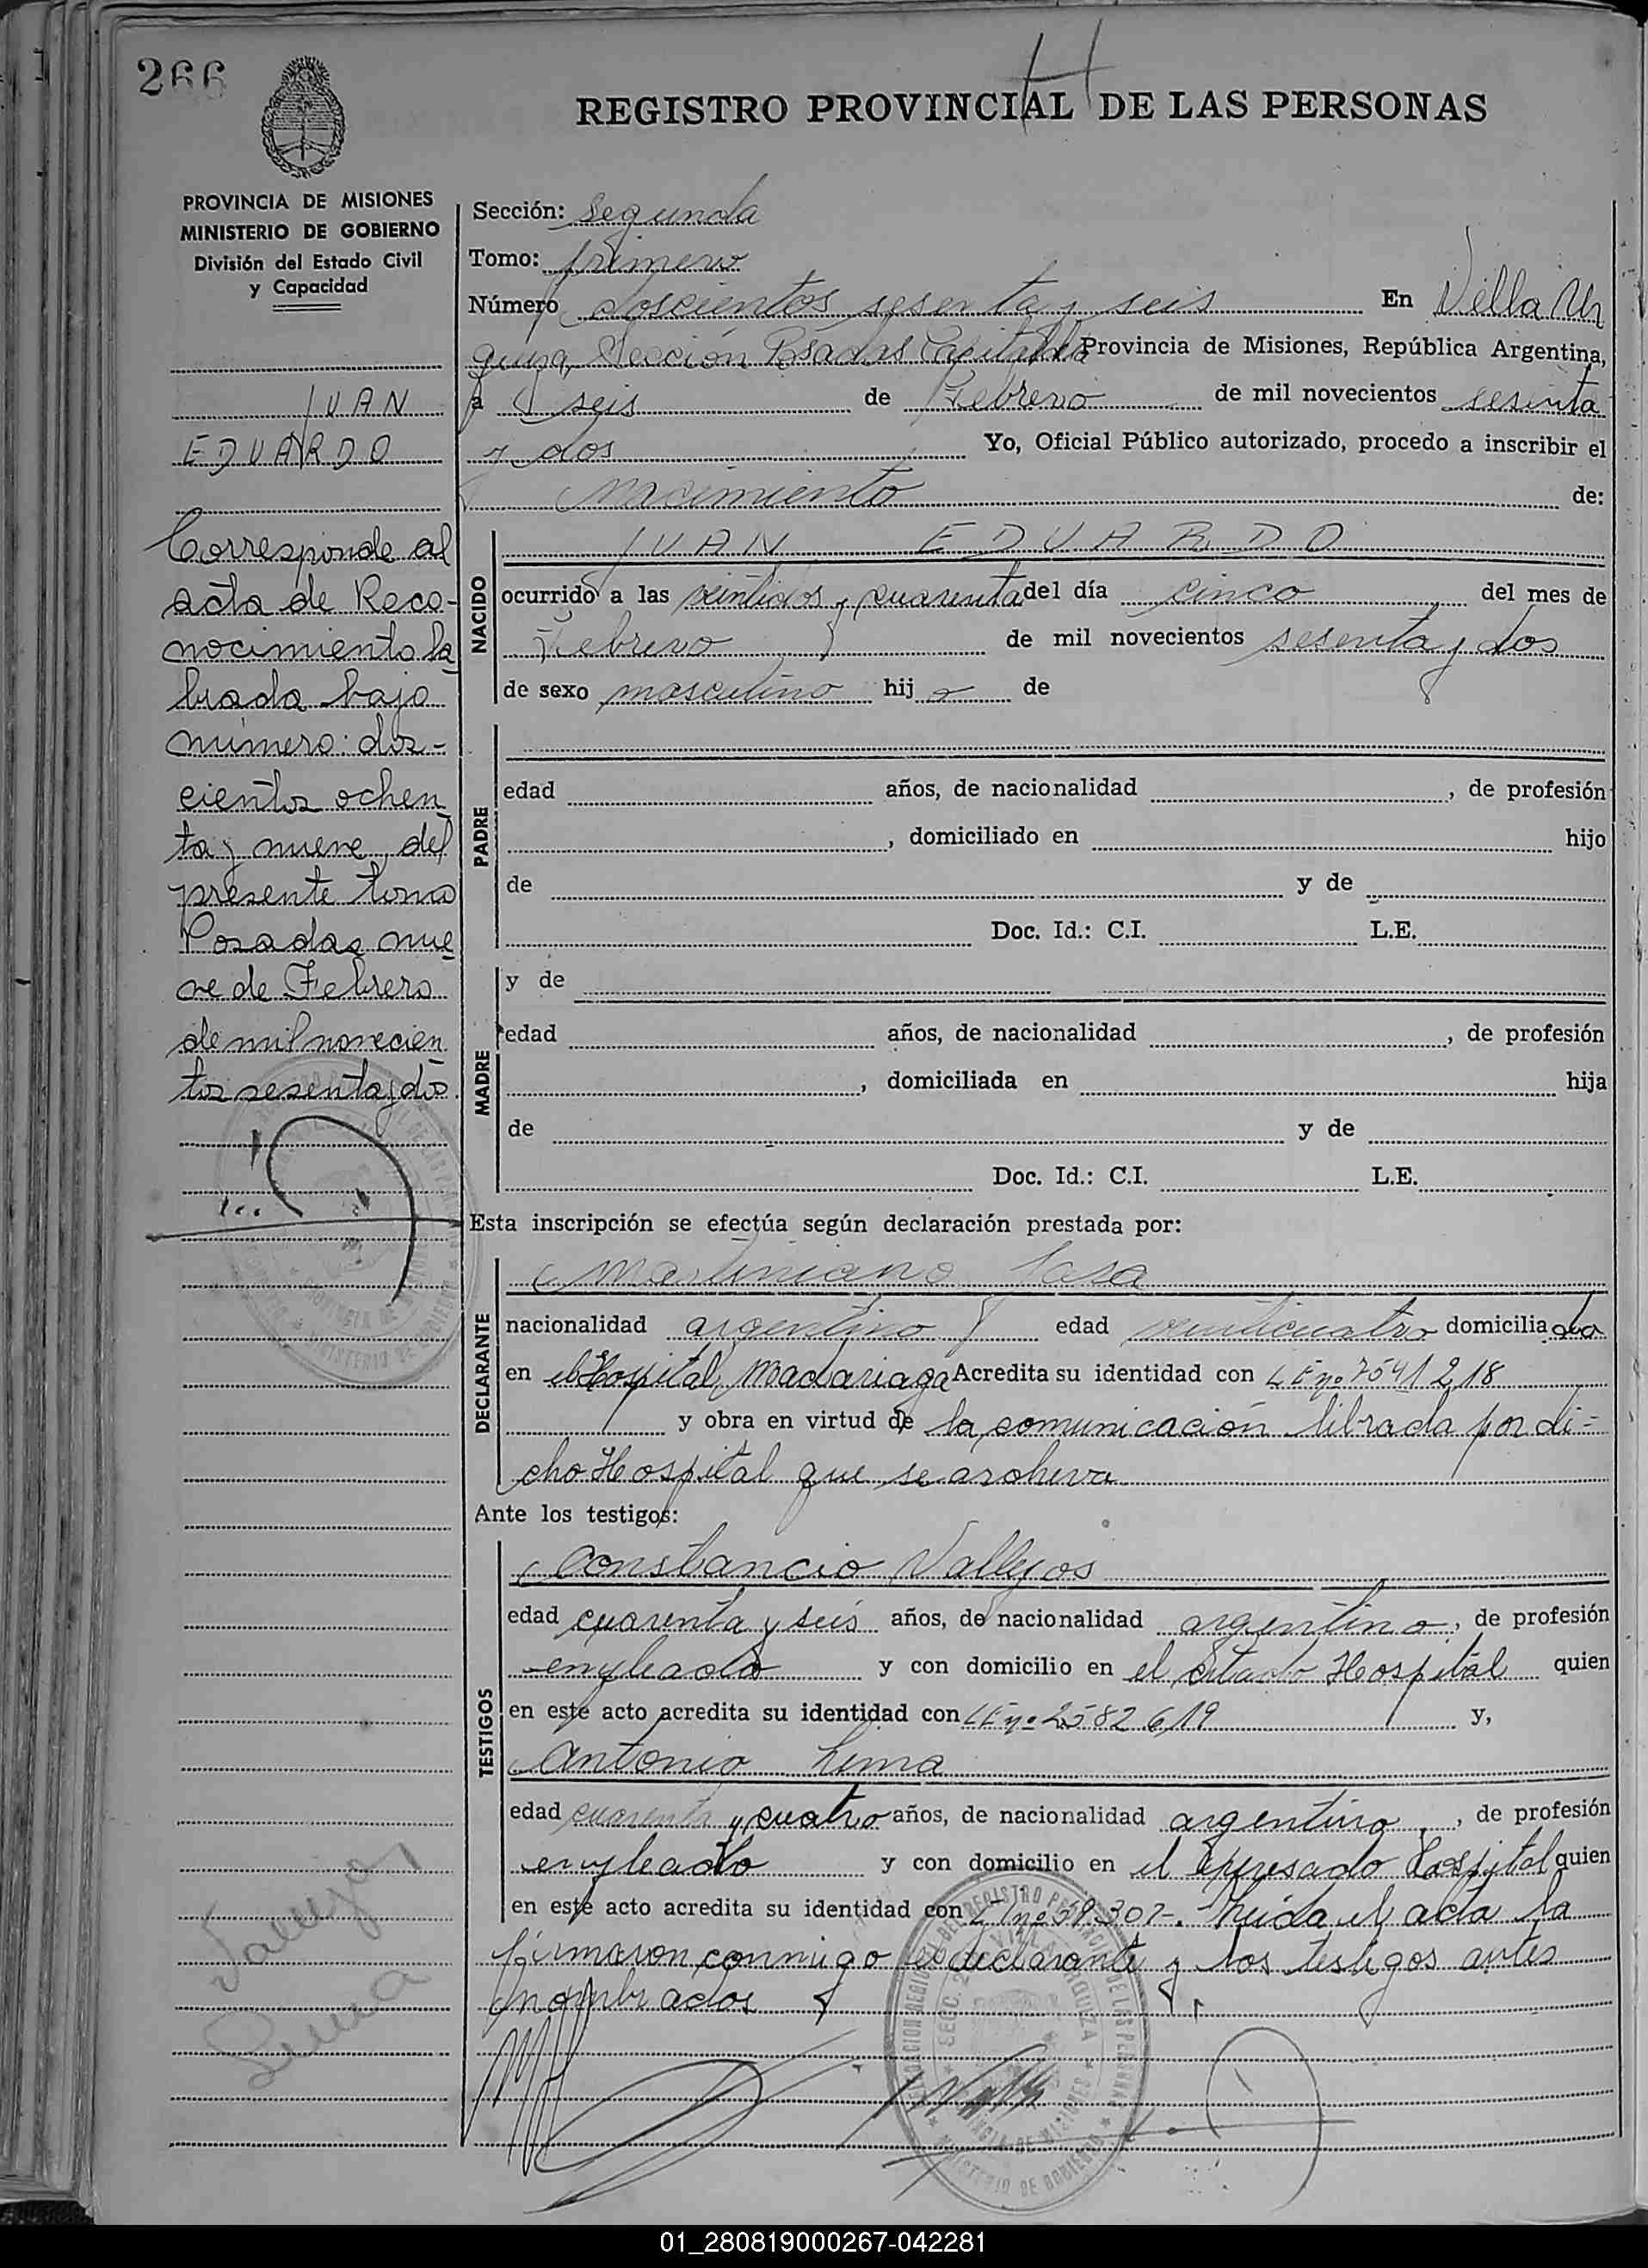 266
REGISTRO PROVINCIAL DE LAS PERSONAS
PROVINCIA DE MISIONES
MINISTERIO DE GOBIERNO
División del Estado Civil
y Capacidad
JUAN
EDUARDO
Corresponde al
acta de Reco-
nocimiento la
brada bajo
número: dos-
cientos ochen
ta y nueve del
presente tomo
Posadas nue
ve de Febrero
de mil novecien
tos sesenta y dos.
Vallejos
Lima
Sección: segunda
Tomo: primero
Número doscientos sesenta y seis En Villa Ur
quiza, Sección Posadas Capital Provincia de Misiones, República Argentina,
a seis de Febrero de mil novecientos sesenta
y dos Yo, Oficial Público autorizado, procedo a inscribir el
nacimiento de:
NACIDO
JUAN EDUARDO
ocurrido a las veintidos y cuarenta del día cinco del mes de
Febrero de mil novecientos sesenta y dos
de sexo masculino hijo de
PADRE
edad años, de nacionalidad , de profesión
, domiciliado en hijo
de y de
Doc. Id.: C.I. L.E.
MADRE
y de
edad años, de nacionalidad , de profesión
, domiciliada en hija
de y de
Doc. Id.: C.I. L.E.
Esta inscripción se efectúa según declaración prestada por:
DECLARANTE
Martiniano Sosa
nacionalidad argentino edad veinticuatro domiciliado
en el Hospital Madariaga Acredita su identidad con LE nº 7541218
y obra en virtud de la comunicación librada por di=
cho Hospital que se archiva
Ante los testigos:
TESTIGOS
Constancio Vallejos
edad cuarenta y seis años, de nacionalidad argentino, de profesión
empleado y con domicilio en el citado Hospital quien
en este acto acredita su identidad con LE nº 2582619 y,
Antonio Lima
edad cuarenta y cuatro años, de nacionalidad argentino, de profesión
empleado y con domicilio en el expresado Hospital quien
en este acto acredita su identidad con nº 59.307-. Leida el acta la
firmaron conmigo el declarante y los testigos antes
nombrados
SECC. 2ª VILLA URQUIZA
PROVINCIA DE MISIONES
MINISTERIO DE GOBIERNO
01_280819000267-042281